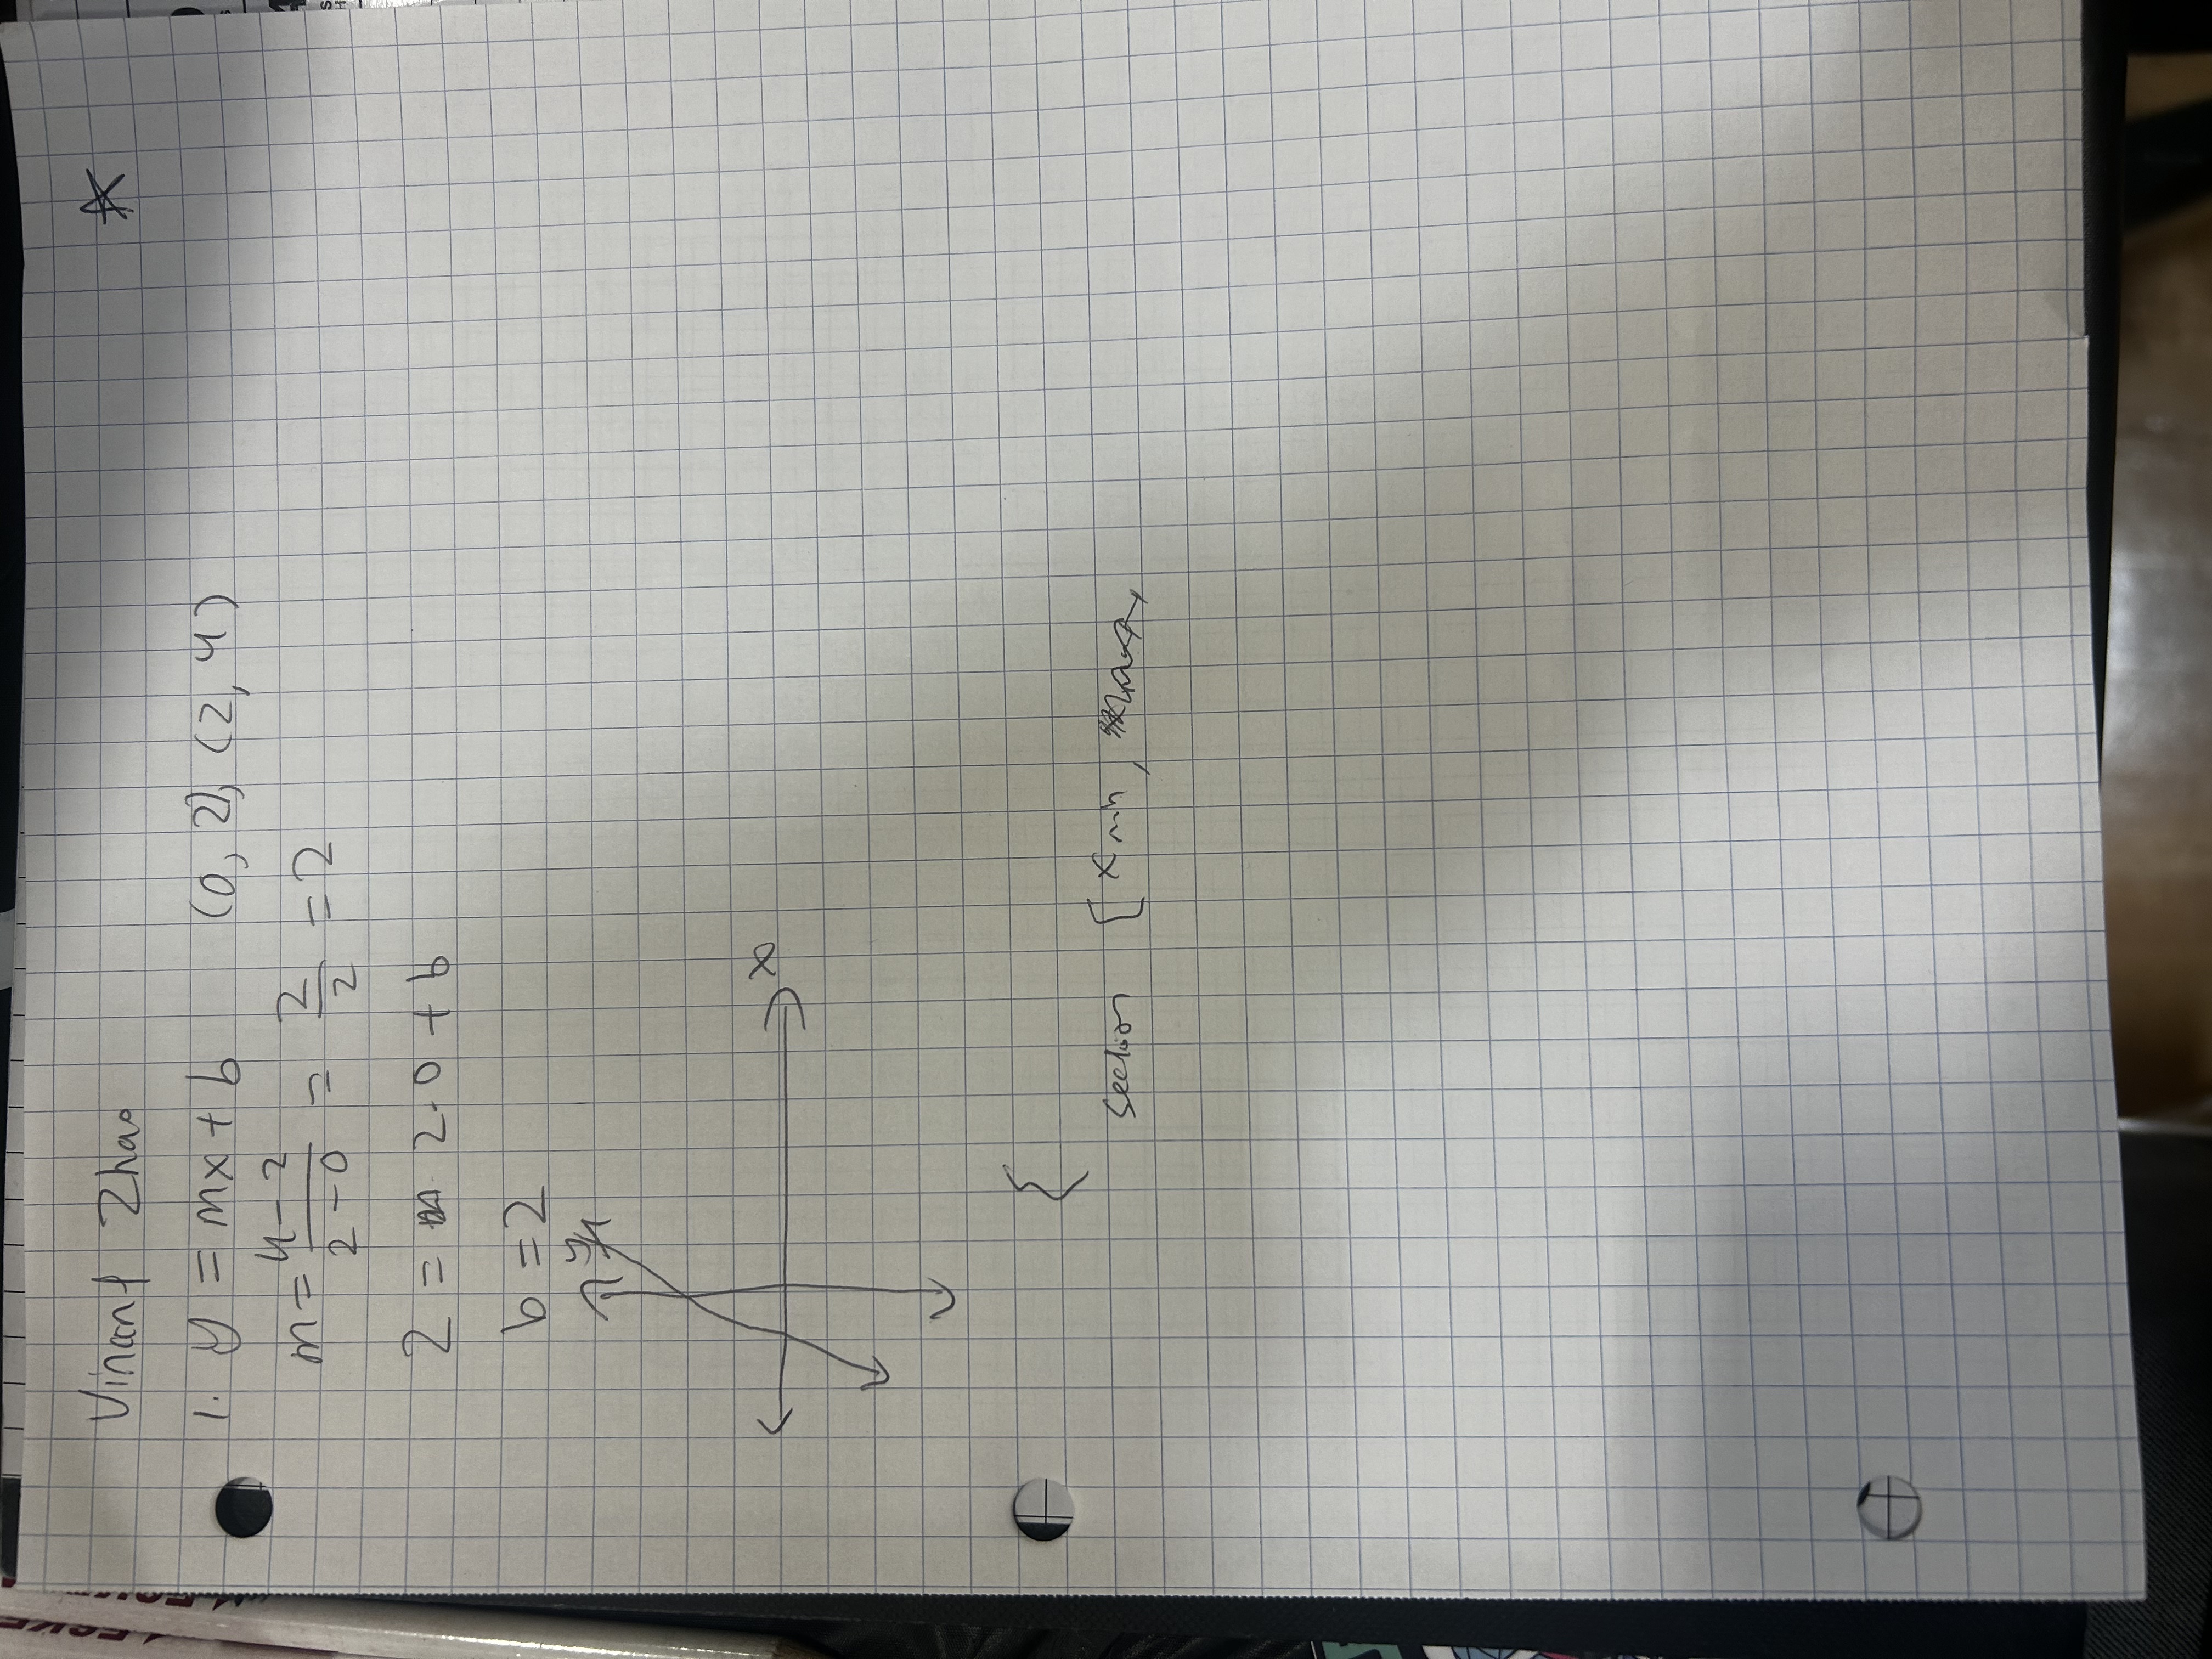 Vincent Zhao
1. y = mx + b (0, 2), (2, 4)
m = 4 - 2 / 2 - 0 = 2 / 2 = 2
2 = 2 · 0 + b
b = 2
y
x
{
section [xmin,